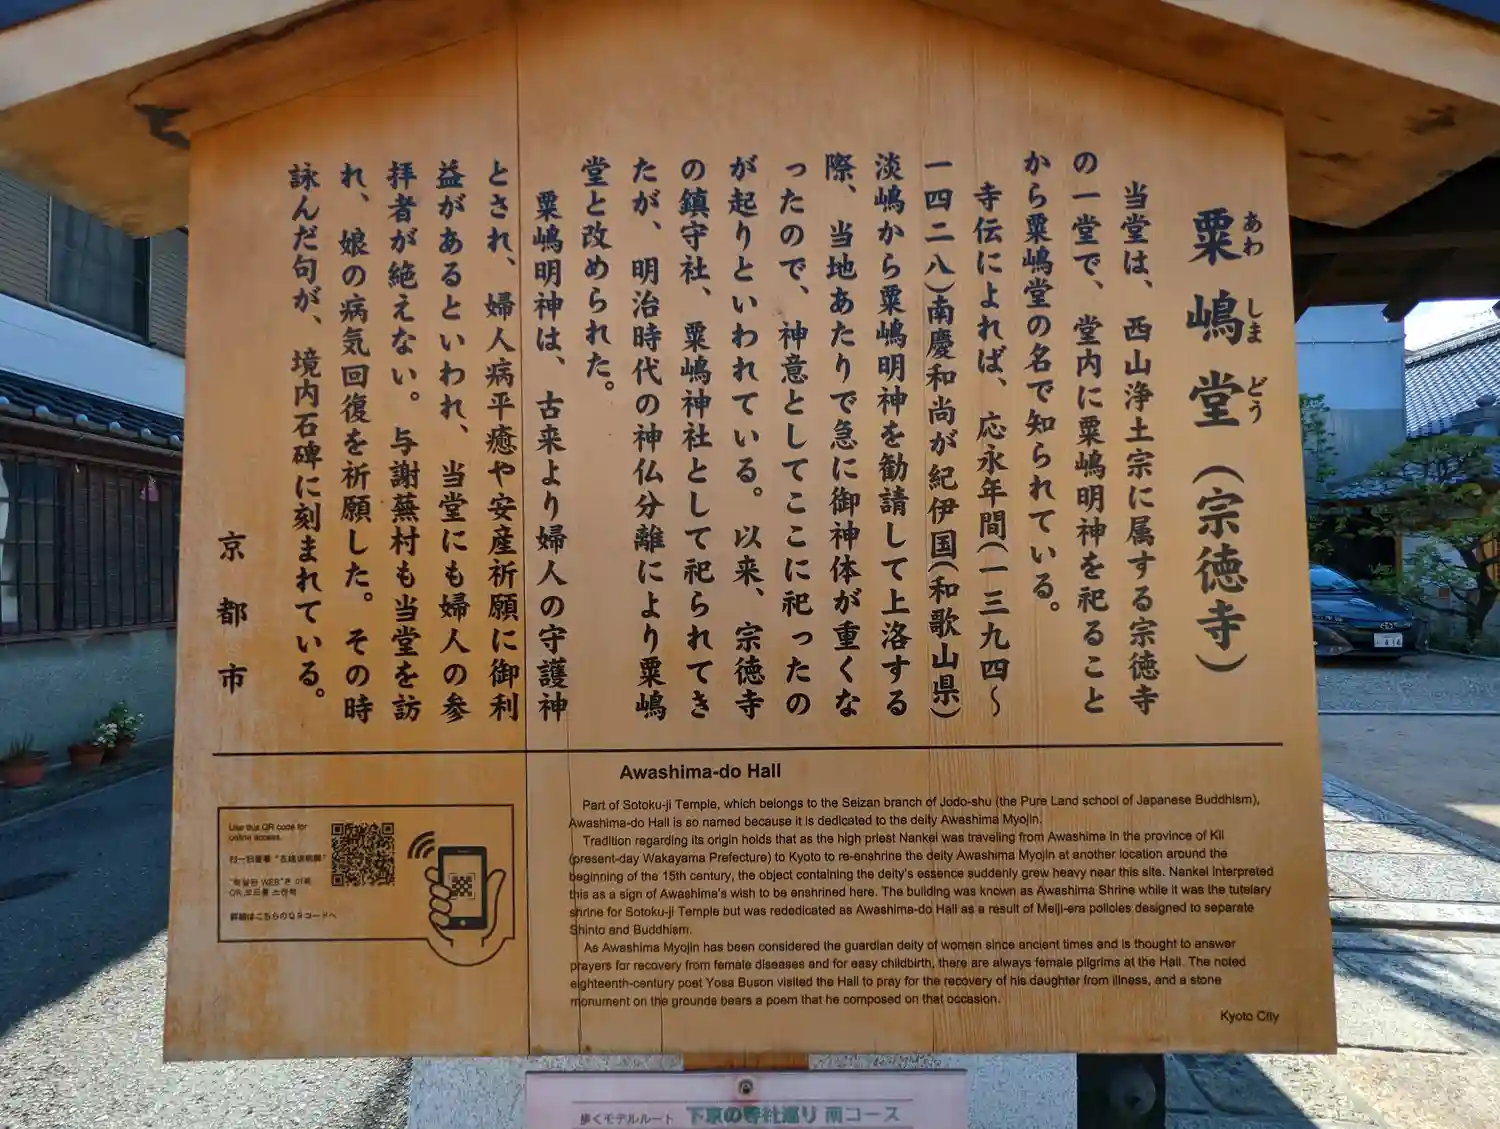 粟嶋堂(宗徳寺)
あわ しま どう
当堂は、西山浄土宗に属する宗徳寺
の一堂で、堂内に粟嶋明神を祀ること
から粟嶋堂の名で知られている。
寺伝によれば、応永年間(一三九四～
一四二八)南慶和尚が紀伊国(和歌山県)
淡嶋から粟嶋明神を勧請して上洛する
際、当地あたりで急に御神体が重くな
ったので、神意としてここに祀ったの
が起りといわれている。以来、宗徳寺
の鎮守社、粟嶋神社として祀られてき
たが、明治時代の神仏分離により粟嶋
堂と改められた。
粟嶋明神は、古来より婦人の守護神
とされ、婦人病平癒や安産祈願に御利
益があるといわれ、当堂にも婦人の参
拝者が絶えない。与謝蕪村も当堂を訪
れ、娘の病気回復を祈願した。その時
詠んだ句が、境内石碑に刻まれている。
京都市
Awashima-do Hall
Part of Sotoku-ji Temple, which belongs to the Seizan branch of Jodo-shu (the Pure Land school of Japanese Buddhism),
Awashima-do Hall is so named because it is dedicated to the deity Awashima Myojin.
Tradition regarding its origin holds that as the high priest Nankei was traveling from Awashima in the province of Kii
(present-day Wakayama Prefecture) to Kyoto to re-enshrine the deity Awashima Myojin at another location around the
beginning of the 15th century, the object containing the deity's essence suddenly grew heavy near this site. Nankei interpreted
this as a sign of Awashima's wish to be enshrined here. The building was known as Awashima Shrine while it was the tutelary
shrine for Sotoku-ji Temple but was rededicated as Awashima-do Hall as a result of Meiji-era policies designed to separate
Shinto and Buddhism.
As Awashima Myojin has been considered the guardian deity of women since ancient times and is thought to answer
prayers for recovery from female diseases and for easy childbirth, there are always female pilgrims at the Hall. The noted
eighteenth-century poet Yosa Buson visited the Hall to pray for the recovery of his daughter from illness, and a stone
monument on the grounds bears a poem that he composed on that occasion.
Kyoto City
Use this QR code for
online access.
扫一扫查看"在线说明牌"
QR 코드를 스캔해
詳細はこちらのQRコードへ
歩くモデルルート 下京の寺社巡り 南コース